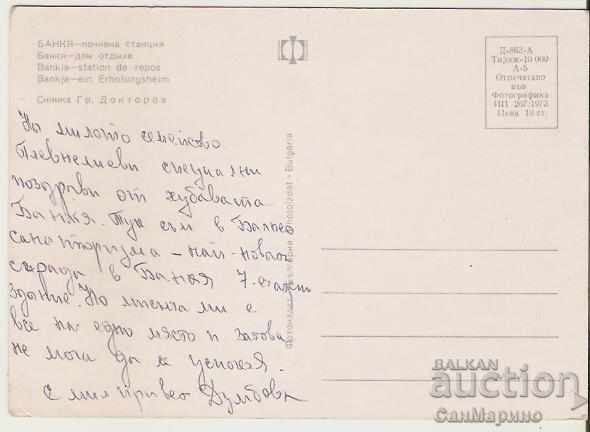 БАНКЯ—почивна станция
Банкя—дом отдыха
Bankia—station de repos
Bankja—ein Erholungsheim
Снимка Гр. Докторов
Д-863-А
Тираж-10 000
А-5
Отпечатано
във
Фотографика
ЧП 267/1973
Цена 10 ст.
До милото семейство
Плевнелиеви специални
поздрави от хубавата
Банкя. Тук съм в Балнео
санаториума – най-новата
сграда в Банкя 7. етажн
здание. Но мисълта ми е
все на едно място и затова
не мога да се успокоя.
С мил привет
Фотоиздат • България Photoizdat • Bulgaria
BALKAN
auction
СанМарино